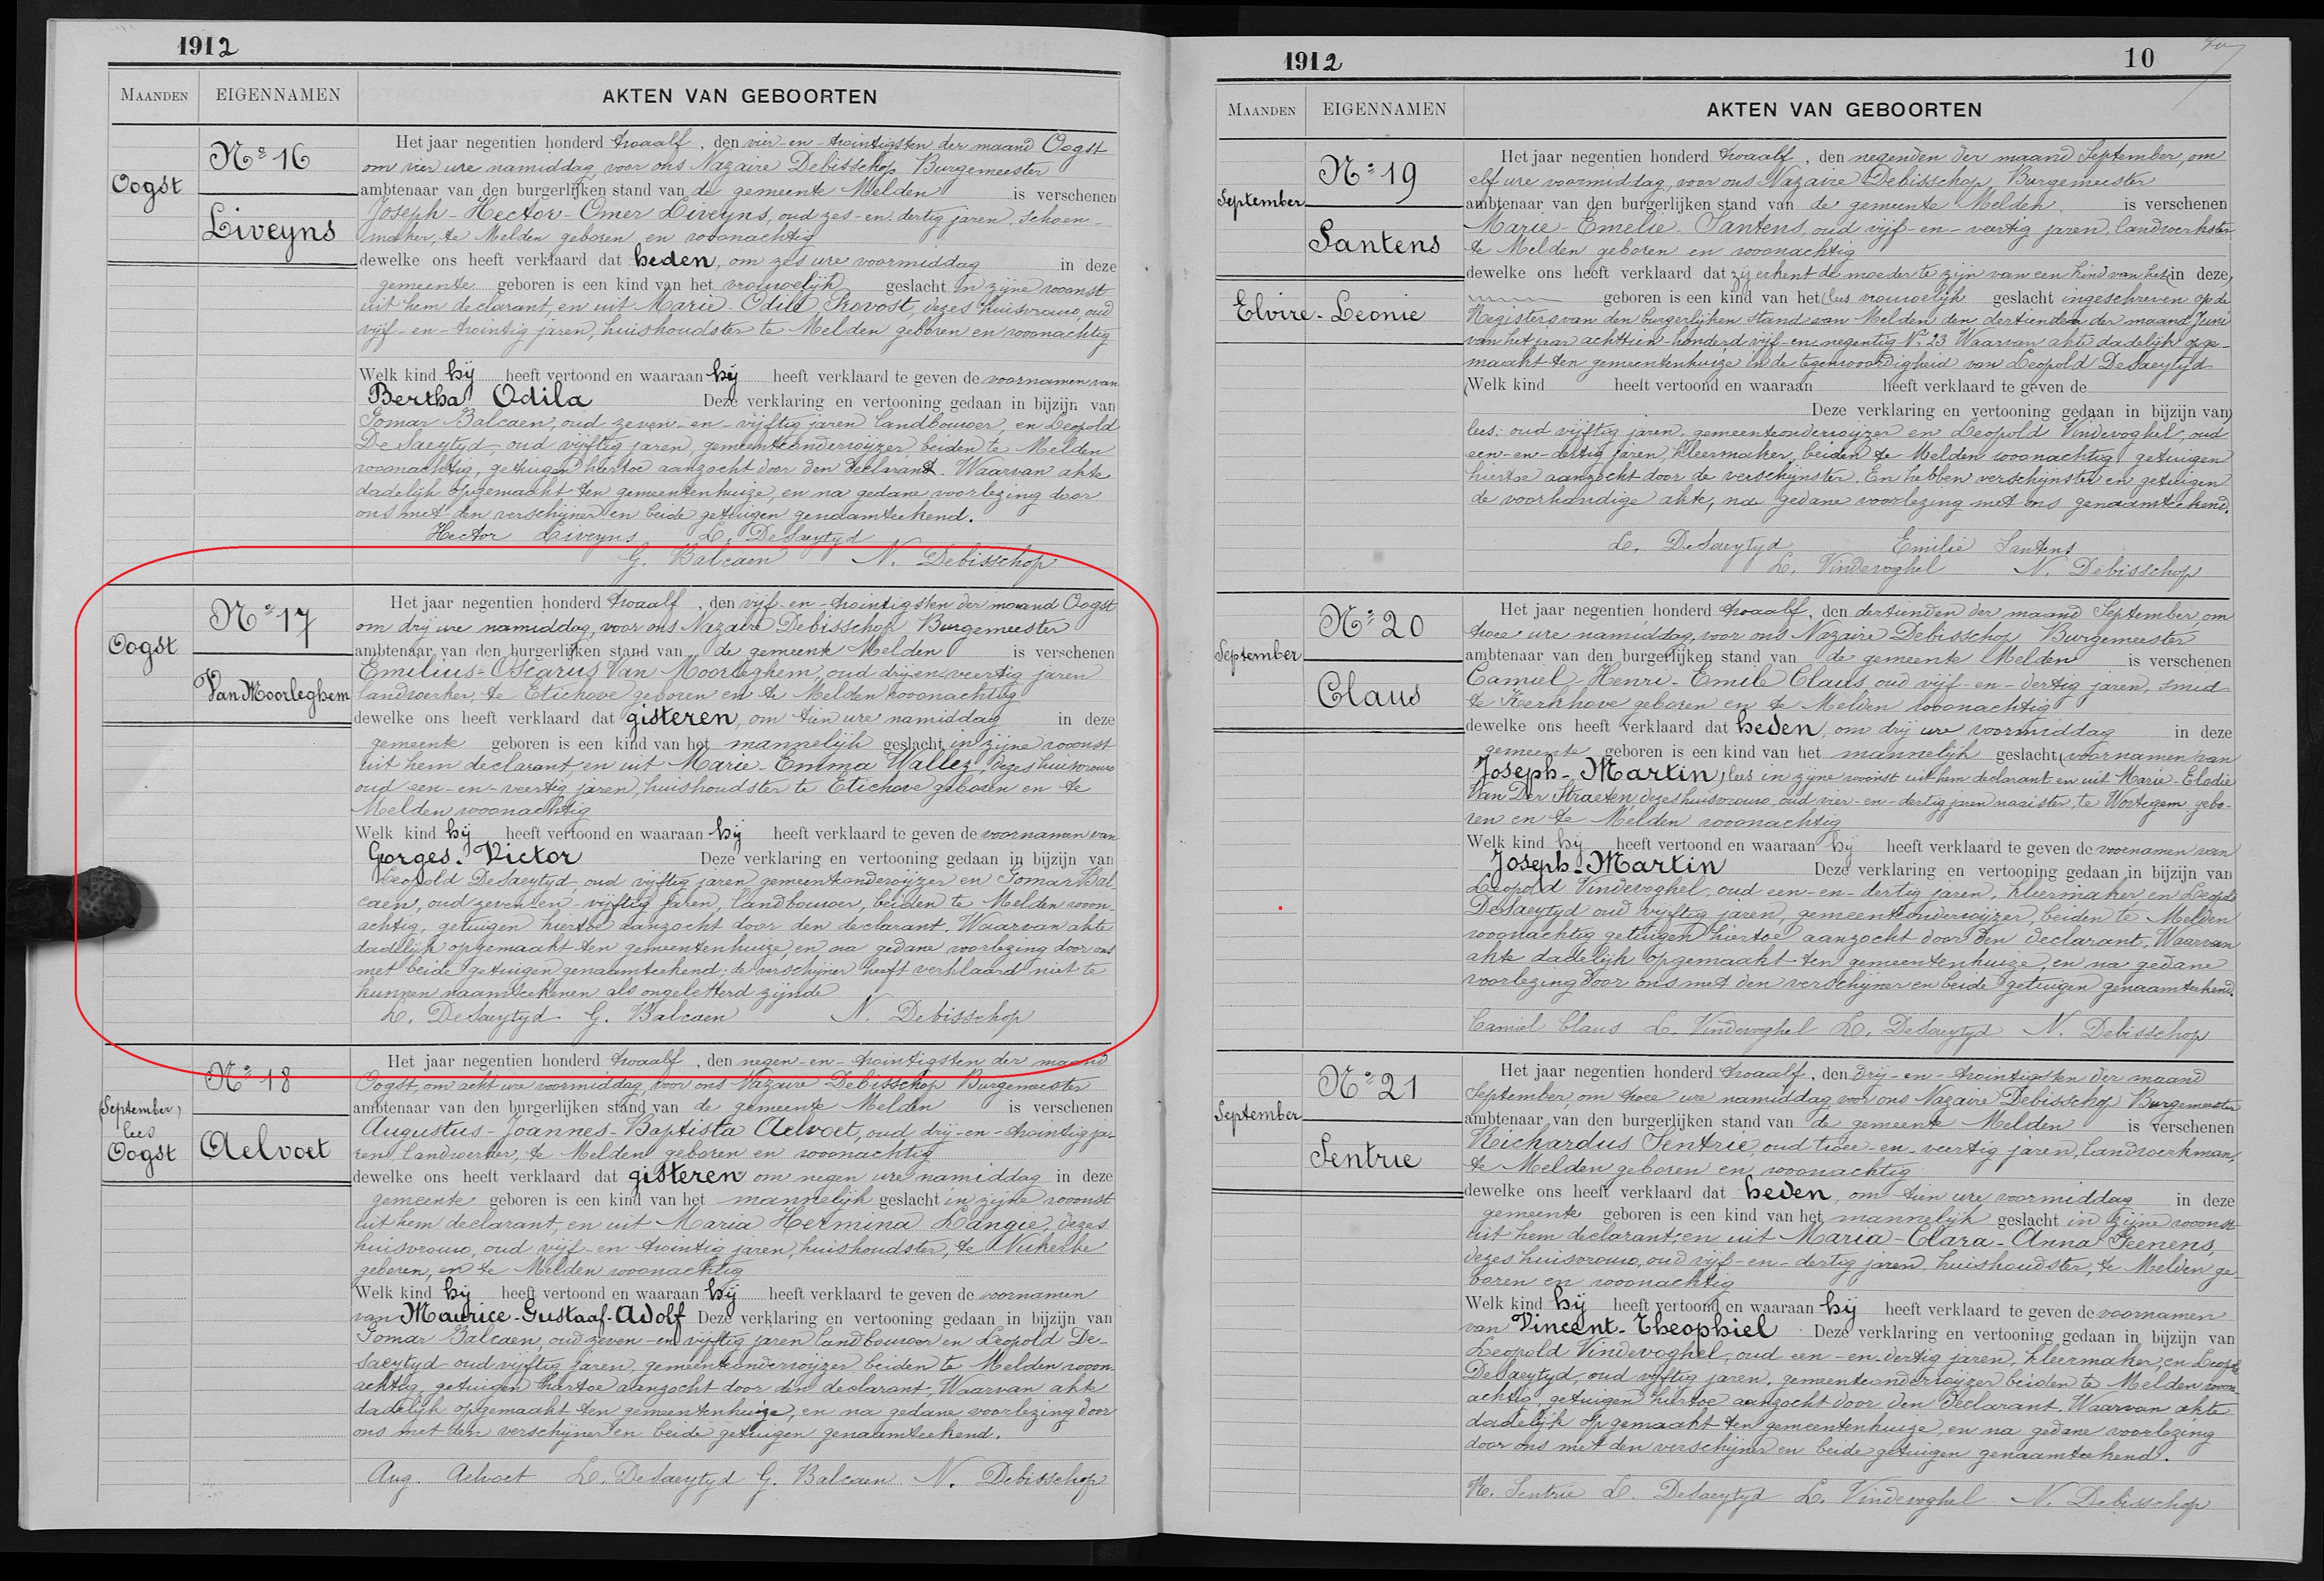 1912
MAANDEN EIGENNAMEN AKTEN VAN GEBOORTEN
Oogst
No 16
Liveyns
Het jaar negentien honderd twaalf, den vier-en-twintigsten der maand Oogst
om vier ure namiddag, voor ons Nazaire Debisschop, Burgemeester
ambtenaar van den burgerlijken stand van de gemeente Melden is verschenen
Joseph-Hector-Omer Liveyns, oud zes-en-dertig jaren, schoen-
maker, te Melden geboren en woonachtig
dewelke ons heeft verklaard dat heden, om zes ure voormiddag in deze
gemeente geboren is een kind van het vrouwelijk geslacht in zijne woonst
uit hem declarant, en uit Marie-Odila Provost, dezes huisvrouw, oud
vijf-en-twintig jaren, huishoudster te Melden geboren en woonachtig
Welk kind hij heeft vertoond en waaraan hij heeft verklaard te geven de voornamen van
Bertha Odila Deze verklaring en vertooning gedaan in bijzijn van
Gomar Balcaen, oud zeven-en-vijftig jaren landbouwer, en Leopold
DeSaeytyd, oud vijftig jaren, gemeenteonderwijzer, beiden te Melden
woonachtig, getuigen hiertoe aanzocht door den declarant. Waarvan akte
dadelijk opgemaakt ten gemeentenhuize, en na gedane voorlezing door
ons met den verschijner en beide getuigen genaamteekend.
Hector Liveyns L. DeSaeytyd
G. Balcaen N. Debisschop
Oogst
No 17
Van Moorleghem
Het jaar negentien honderd twaalf, den vijf-en-twintigsten der maand Oogst
om drij ure namiddag, voor ons Nazaire Debisschop Burgemeester
ambtenaar van den burgerlijken stand van de gemeente Melden is verschenen
Emilius-Oscarus Van Moorleghem, oud drij-en-veertig jaren
landwerker, te Etichove geboren en te Melden woonachtig
dewelke ons heeft verklaard dat gisteren, om tien ure namiddag in deze
gemeente geboren is een kind van het mannelijk geslacht in zijne woonst
uit hem declarant, en uit Marie-Emma Wallez, dezes huisvrouw
oud een-en-veertig jaren, huishoudster te Etichove geboren en te
Melden woonachtig
Welk kind hij heeft vertoond en waaraan hij heeft verklaard te geven de voornamen van
Georges-Victor Deze verklaring en vertooning gedaan in bijzijn van
Leopold DeSaeytyd, oud vijftig jaren gemeenteonderwijzer en Gomar Bal
caen, oud zeven-en-vijftig jaren, landbouwer, beiden te Melden woon-
achtig, getuigen hiertoe aanzocht door den declarant. Waarvan akte
dadelijk opgemaakt ten gemeentenhuize, en na gedane voorlezing door ons
met beide getuigen genaamteekend; de verschijner heeft verklaard niet te
kunnen naamteekenen als ongeletterd zijnde
L. DeSaeytyd G. Balcaen N. Debisschop
(September)
lees
Oogst
No 18
Aelvoet
Het jaar negentien honderd twaalf, den negen-en-twintigsten der maand
Oogst, om acht ure voormiddag, voor ons Nazaire Debisschop Burgemeester
ambtenaar van den burgerlijken stand van de gemeente Melden is verschenen
Augustus-Joannes-Baptista Aelvoet, oud drij-en-twintig ja-
ren, landwerker, te Melden geboren en woonachtig
dewelke ons heeft verklaard dat gisteren om negen ure namiddag in deze
gemeente geboren is een kind van het mannelijk geslacht in zijne woonst
uit hem declarant, en uit Maria Hermina Langie, dezes
huisvrouw, oud vijf-en-twintig jaren, huishoudster, te Nukerke
geboren, en te Melden woonachtig
Welk kind hij heeft vertoond en waaraan hij heeft verklaard te geven de voornamen
van Maurice-Gustaaf-Adolf Deze verklaring en vertooning gedaan in bijzijn van
Gomar Balcaen, oud zeven-en vijftig jaren landbouwer en Leopold De-
Saeytyd oud vijftig jaren, gemeenteonderwijzer beiden te Melden woon-
achtig, getuigen hiertoe aanzocht door den declarant, Waarvan akte
dadelijk opgemaakt ten gemeentenhuize, en na gedane voorlezing door
ons met den verschijner en beide getuigen genaamteekend.
Aug. Aelvoet L. DeSaeytyd G. Balcaen N. Debisschop
1912 10
MAANDEN EIGENNAMEN AKTEN VAN GEBOORTEN
September
No 19
Santens
Elvire-Leonie
Het jaar negentien honderd twaalf, den negenden der maand September, om
elf ure voormiddag, voor ons Nazaire Debisschop, Burgemeester
ambtenaar van den burgerlijken stand van de gemeente Melden is verschenen
Marie-Emelie Santens, oud vijf-en-veertig jaren, landwerkster
te Melden geboren en woonachtig
dewelke ons heeft verklaard dat zij erkent de moeder te zijn van een kind van het (in deze)
geboren is een kind van het (lees vrouwelijk geslacht ingeschreven op de
Registers van den burgerlijken stand van Melden den dertienden der maand Juni
van het jaar achttien-honderd vijf-en-negentig No 23 Waarvan akte dadelijk opge-
maakt ten gemeentenhuize in de tegenwoordigheid van Leopold DeSaeytyd
(Welk kind heeft vertoond en waaraan heeft verklaard te geven de
Deze verklaring en vertooning gedaan in bijzijn van)
lees: oud vijftig jaren, gemeenteonderwijzer en Leopold Vindevoghel, oud
een-en-dertig jaren, kleermaker, beiden te Melden woonachtig, getuigen
hiertoe aanzocht door de verschijnster. En hebben verschijnster en getuigen
de voorhandige akte, na gedane voorlezing met ons genaamteekend.
L. DeSaeytyd Emilie Santens
L. Vindevoghel N. Debisschop
September
No 20
Claus
Het jaar negentien honderd twaalf, den dertienden der maand September, om
twee ure namiddag, voor ons Nazaire Debisschop Burgemeester
ambtenaar van den burgerlijken stand van de gemeente Melden is verschenen
Camiel-Henri-Emile Claus oud vijf-en-dertig jaren, smid
te Kerkhove geboren en te Melden woonachtig
dewelke ons heeft verklaard dat heden, om drij ure voormiddag in deze
gemeente geboren is een kind van het mannelijk geslacht (voornamen van
Joseph-Martin) lees in zijne woonst uit hem declarant en uit Marie-Elodie
Van Der Straeten, dezes huisvrouw, oud vier-en-dertig jaren naaister, te Wortegem gebo-
ren en te Melden woonachtig
Welk kind hij heeft vertoond en waaraan hij heeft verklaard te geven de voornamen van
Joseph-Martin Deze verklaring en vertooning gedaan in bijzijn van
Leopold Vindevoghel, oud een-en-dertig jaren, kleermaker, en Leopold
DeSaeytyd oud vijftig jaren, gemeenteonderwijzer, beiden te Melden
woonachtig getuigen hiertoe aanzocht door den declarant, Waarvan
akte dadelijk opgemaakt ten gemeentenhuize, en na gedane
voorlezing door ons met den verschijner en beide getuigen genaamteekend.
Camiel Claus L. Vindevoghel L. DeSaeytyd N. Debisschop
September
No 21
Sentrie
Het jaar negentien honderd twaalf, den drij-en-twintigsten der maand
September, om twee ure namiddag voor ons Nazaire Debisschop Burgemeester
ambtenaar van den burgerlijken stand van de gemeente Melden is verschenen
Richardus Sentrie, oud twee-en-veertig jaren, landwerkman,
te Melden geboren en woonachtig
dewelke ons heeft verklaard dat heden, om tien ure voormiddag in deze
gemeente geboren is een kind van het mannelijk geslacht in zijne woonst
uit hem declarant, en uit Maria-Clara-Anna Geenens,
dezes huisvrouw, oud vijf-en-dertig jaren huishoudster, te Melden ge-
boren en woonachtig
Welk kind hij heeft vertoond en waaraan hij heeft verklaard te geven de voornamen
van Vincent-Theophiel Deze verklaring en vertooning gedaan in bijzijn van
Leopold Vindevoghel, oud een-en-dertig jaren, kleermaker, en Leopold
DeSaeytyd, oud vijftig jaren, gemeenteonderwijzer beiden te Melden woon-
achtig, getuigen hiertoe aanzocht door den declarant. Waarvan akte
dadelijk opgemaakt ten gemeentenhuize, en na gedane voorlezing
door ons met den verschijner en beide getuigen genaamteekend.
R. Sentrie L. DeSaeytyd L. Vindevoghel N. Debisschop